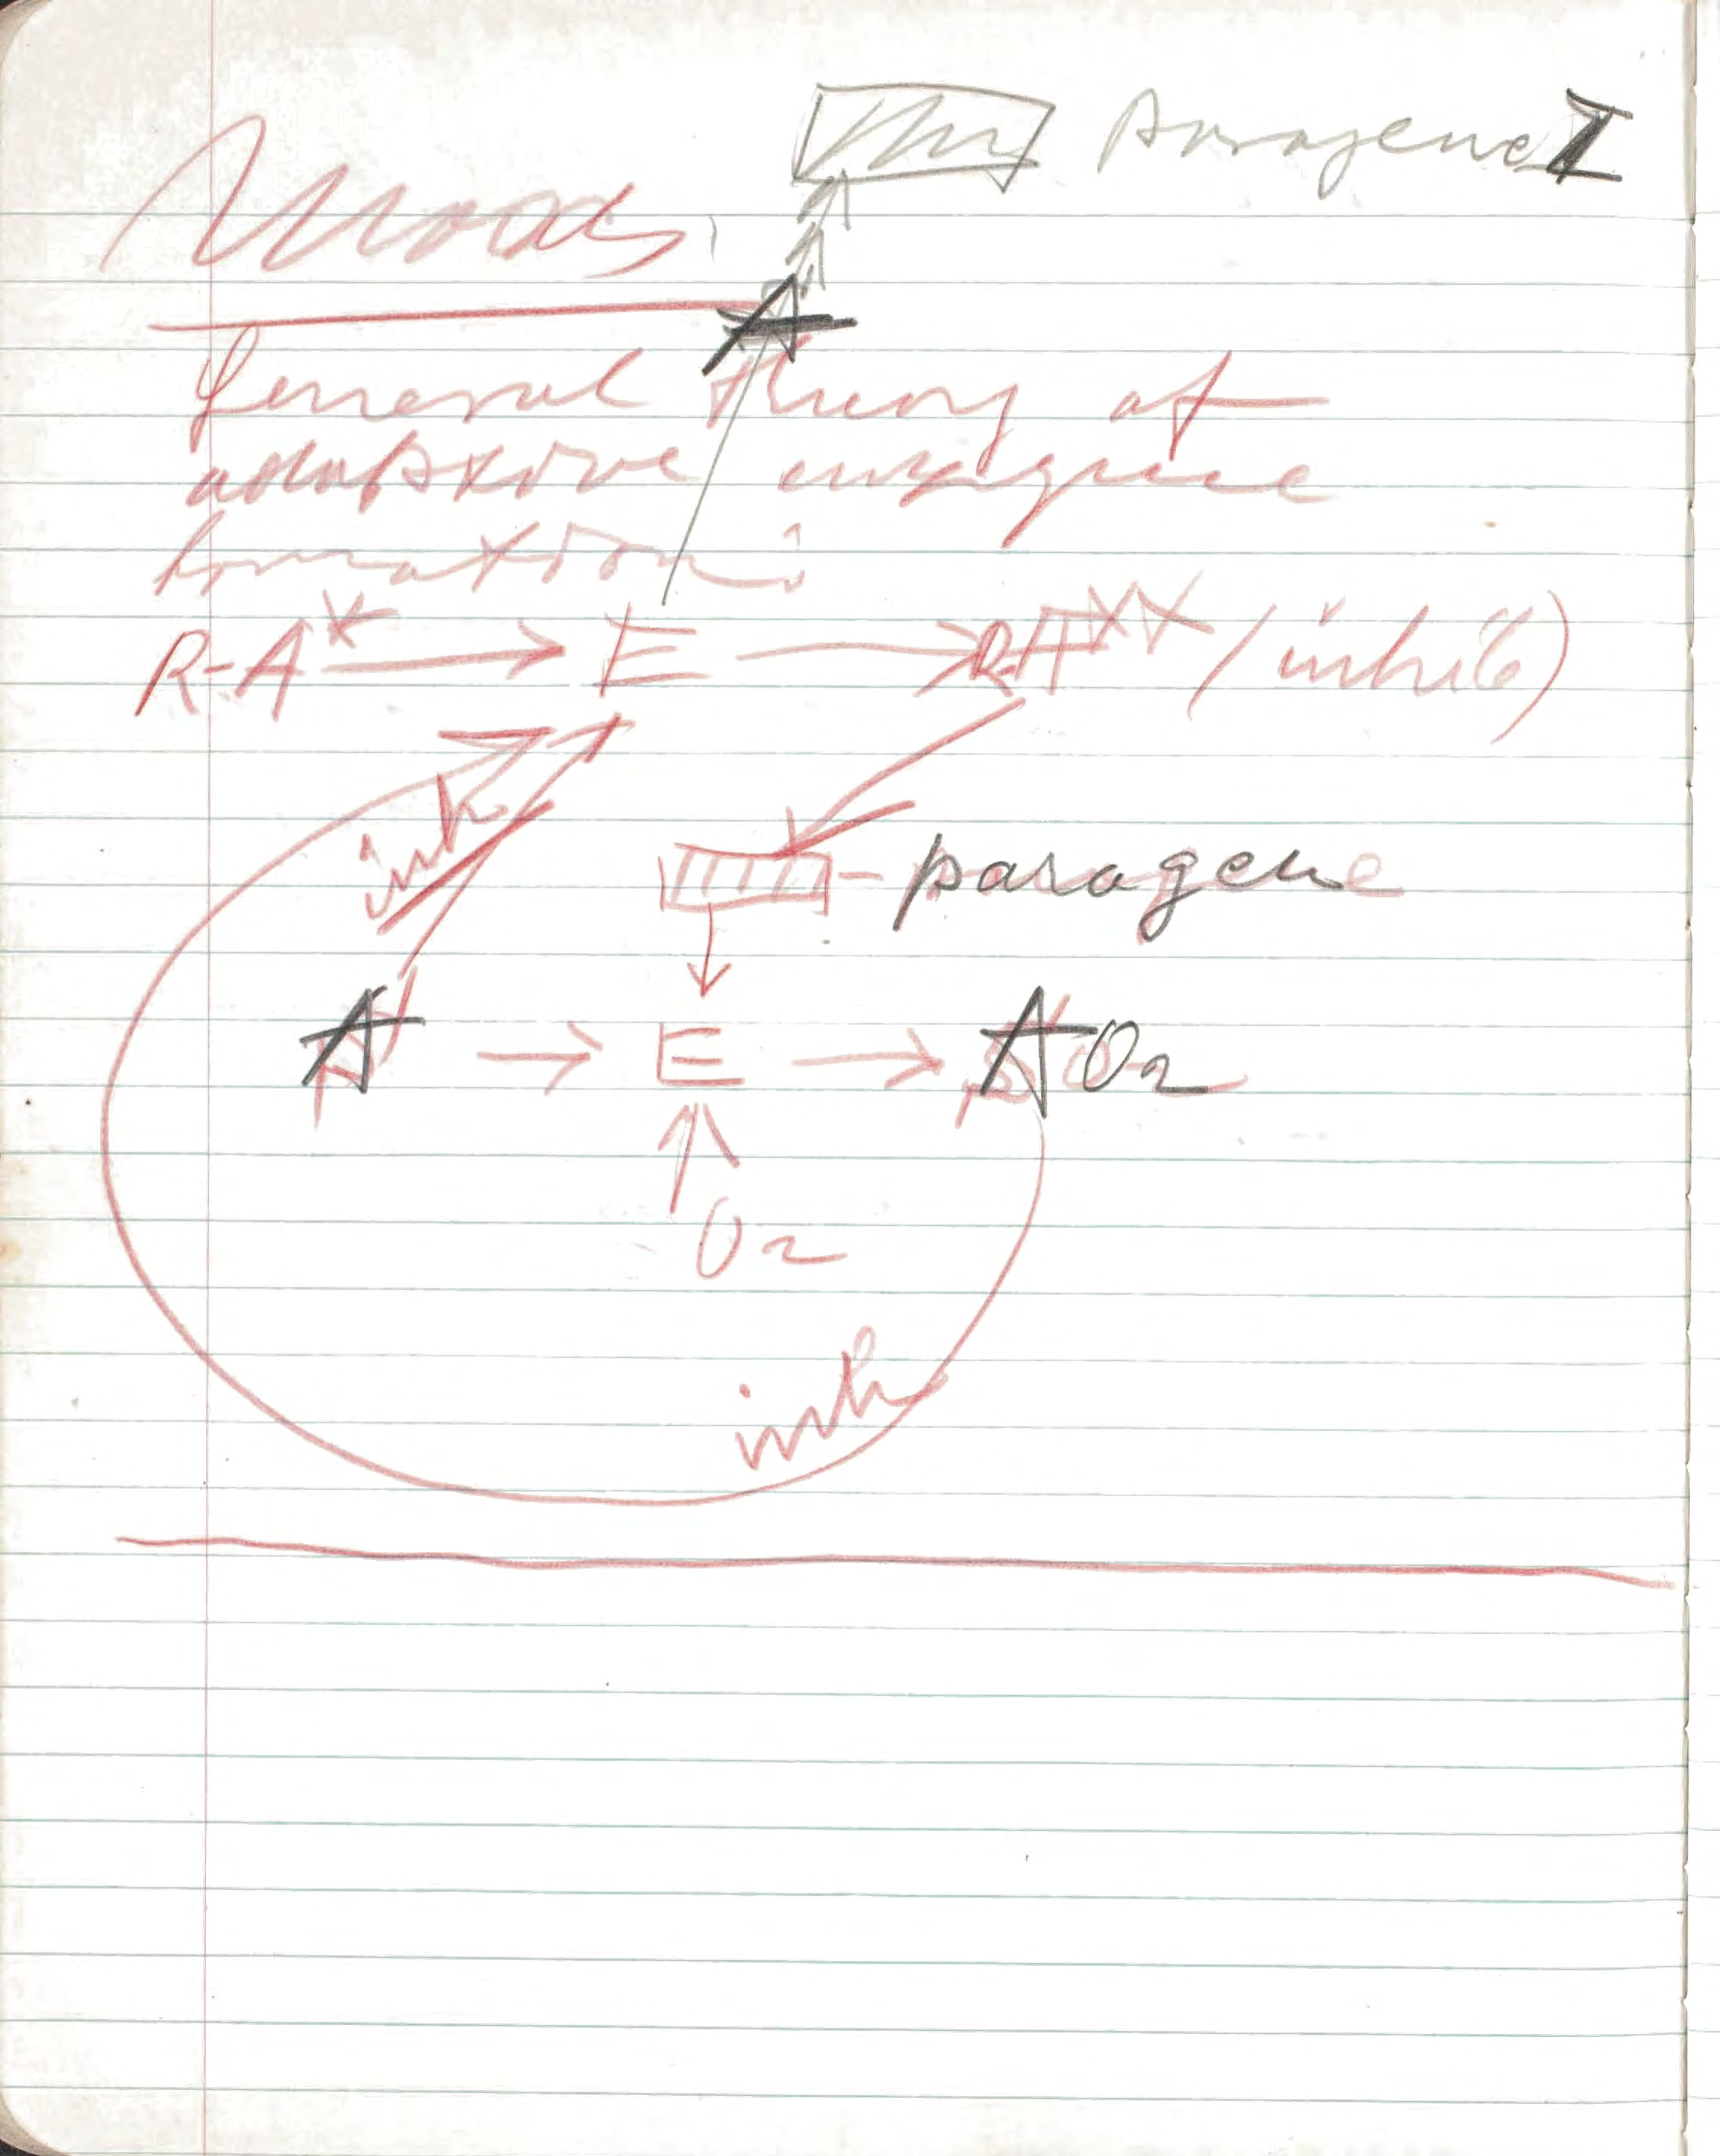 paragene I
General theory of
adaptive enzyme
formation:
A
R-A* → E → R-A** (inhib)
inh
paragene
A → E → AO2
O2
inh